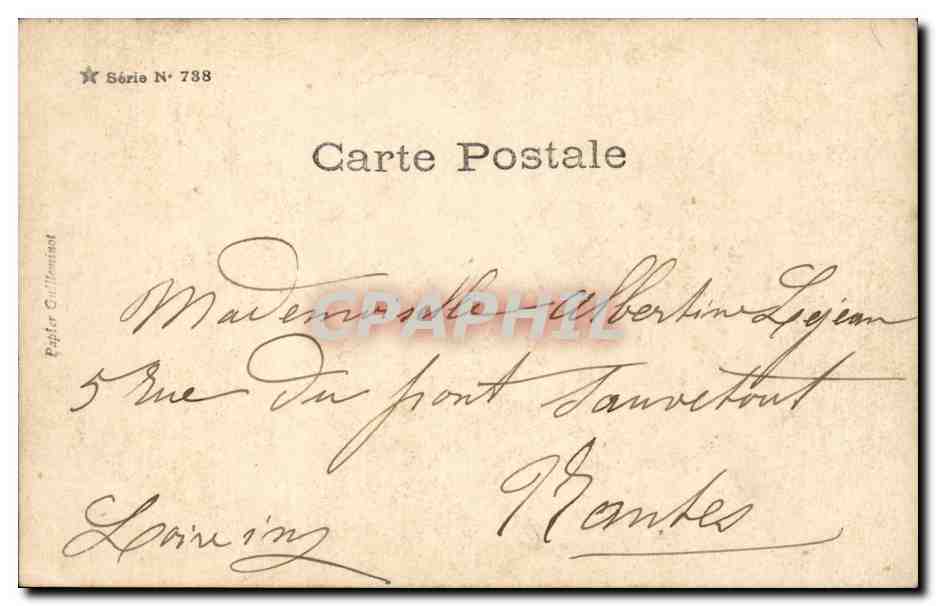 ★ Série N° 738
Carte Postale
Papier Guilleminot
Mademoiselle Albertine Lejean
CPAPHIL
5 Rue du pont Sauvetout
Nantes
Loire inf